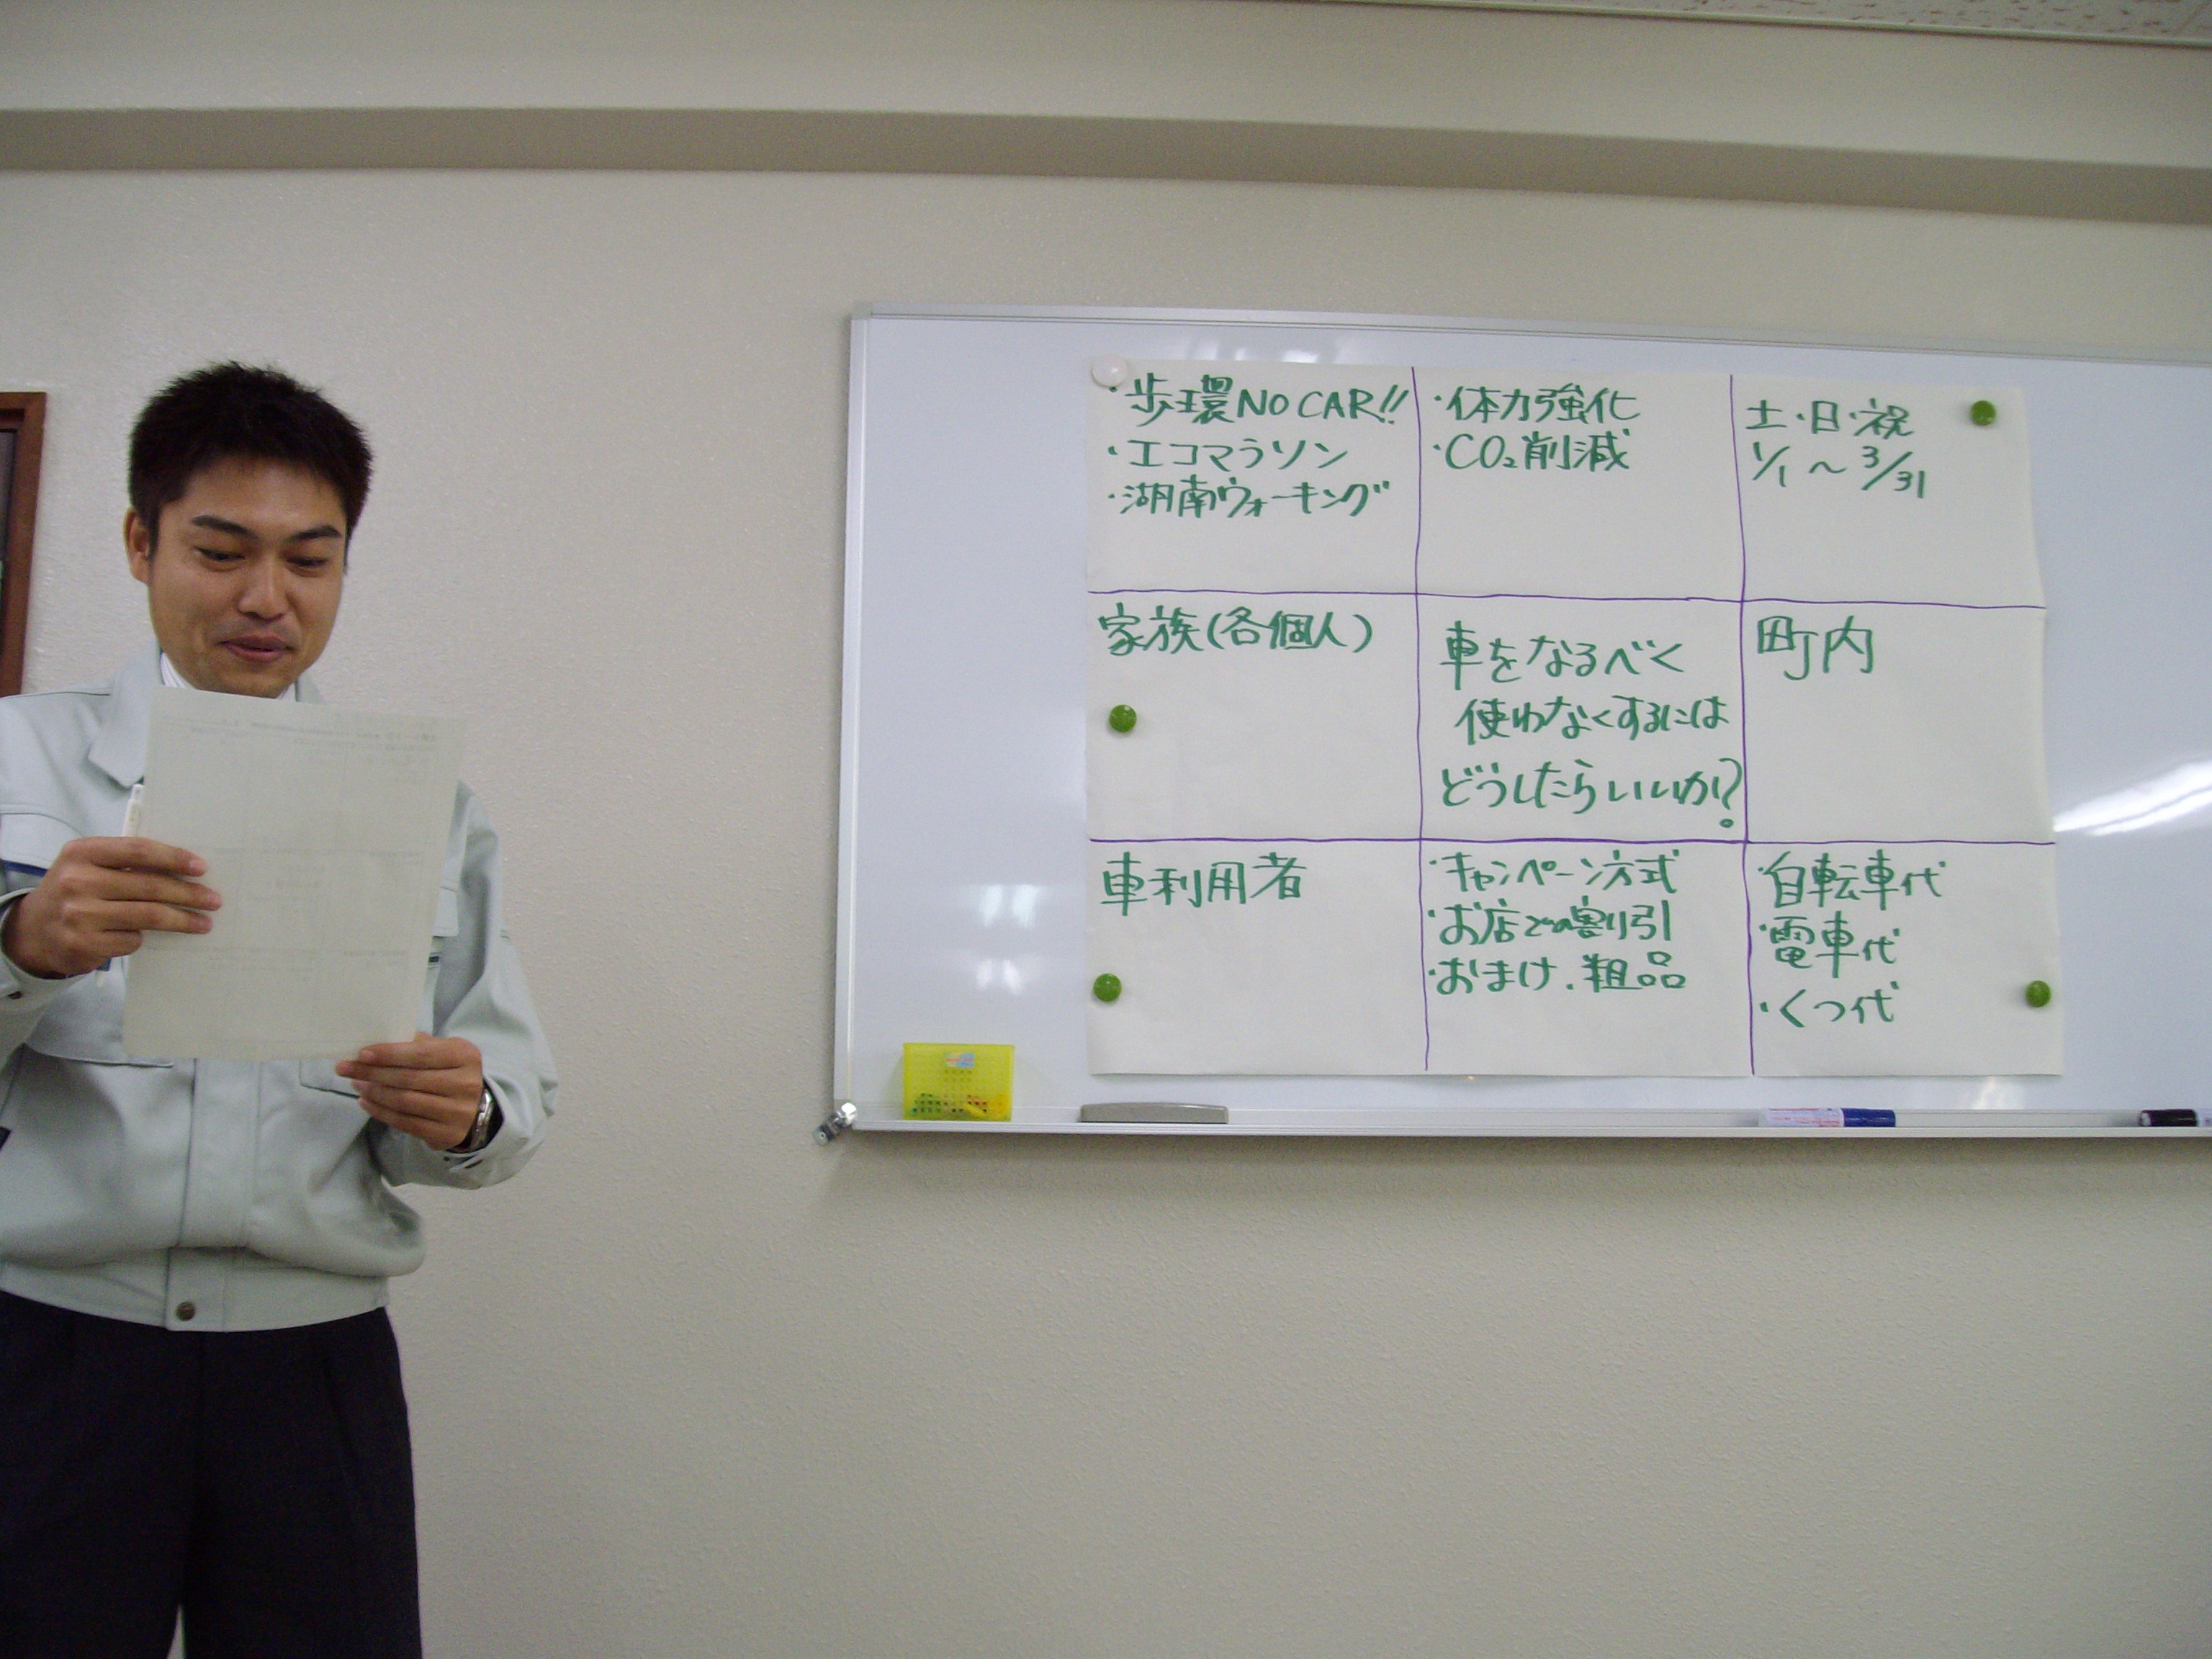 ・歩環NO CAR!!
・エコマラソン
・湖南ウォーキング
・体力強化
・CO₂削減
土・日・祝
1/1 ～ 3/31
家族(各個人)
車をなるべく
使わなくするには
どうしたらいいか?
町内
車利用者
・キャンペーン方式
・お店での割り引
・おまけ.粗品
・自転車代
・電車代
・くつ代